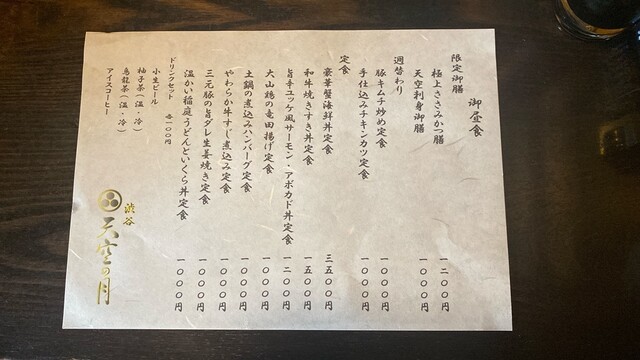 御昼食
限定御膳
極上ささみかつ膳 一二〇〇円
天空刺身御膳 一〇〇〇円
週替わり
豚キムチ炒め定食 一〇〇〇円
手仕込みチキンカツ定食 一〇〇〇円
定食
豪華蟹海鮮丼定食 三五〇〇円
和牛焼きすき丼定食 一五〇〇円
旨辛ユッケ風サーモン・アボカド丼定食 一二〇〇円
大山鶏の竜田揚げ定食 一〇〇〇円
土鍋の煮込みハンバーグ定食 一〇〇〇円
やわらか牛すじ煮込み定食 一〇〇〇円
三元豚の旨ダレ生姜焼き定食 一〇〇〇円
温かい稲庭うどんといくら丼定食 一〇〇〇円
ドリンクセット 各一〇〇円
小生ビール
柚子茶(温・冷)
烏龍茶(温・冷)
アイスコーヒー
渋谷
天空の月